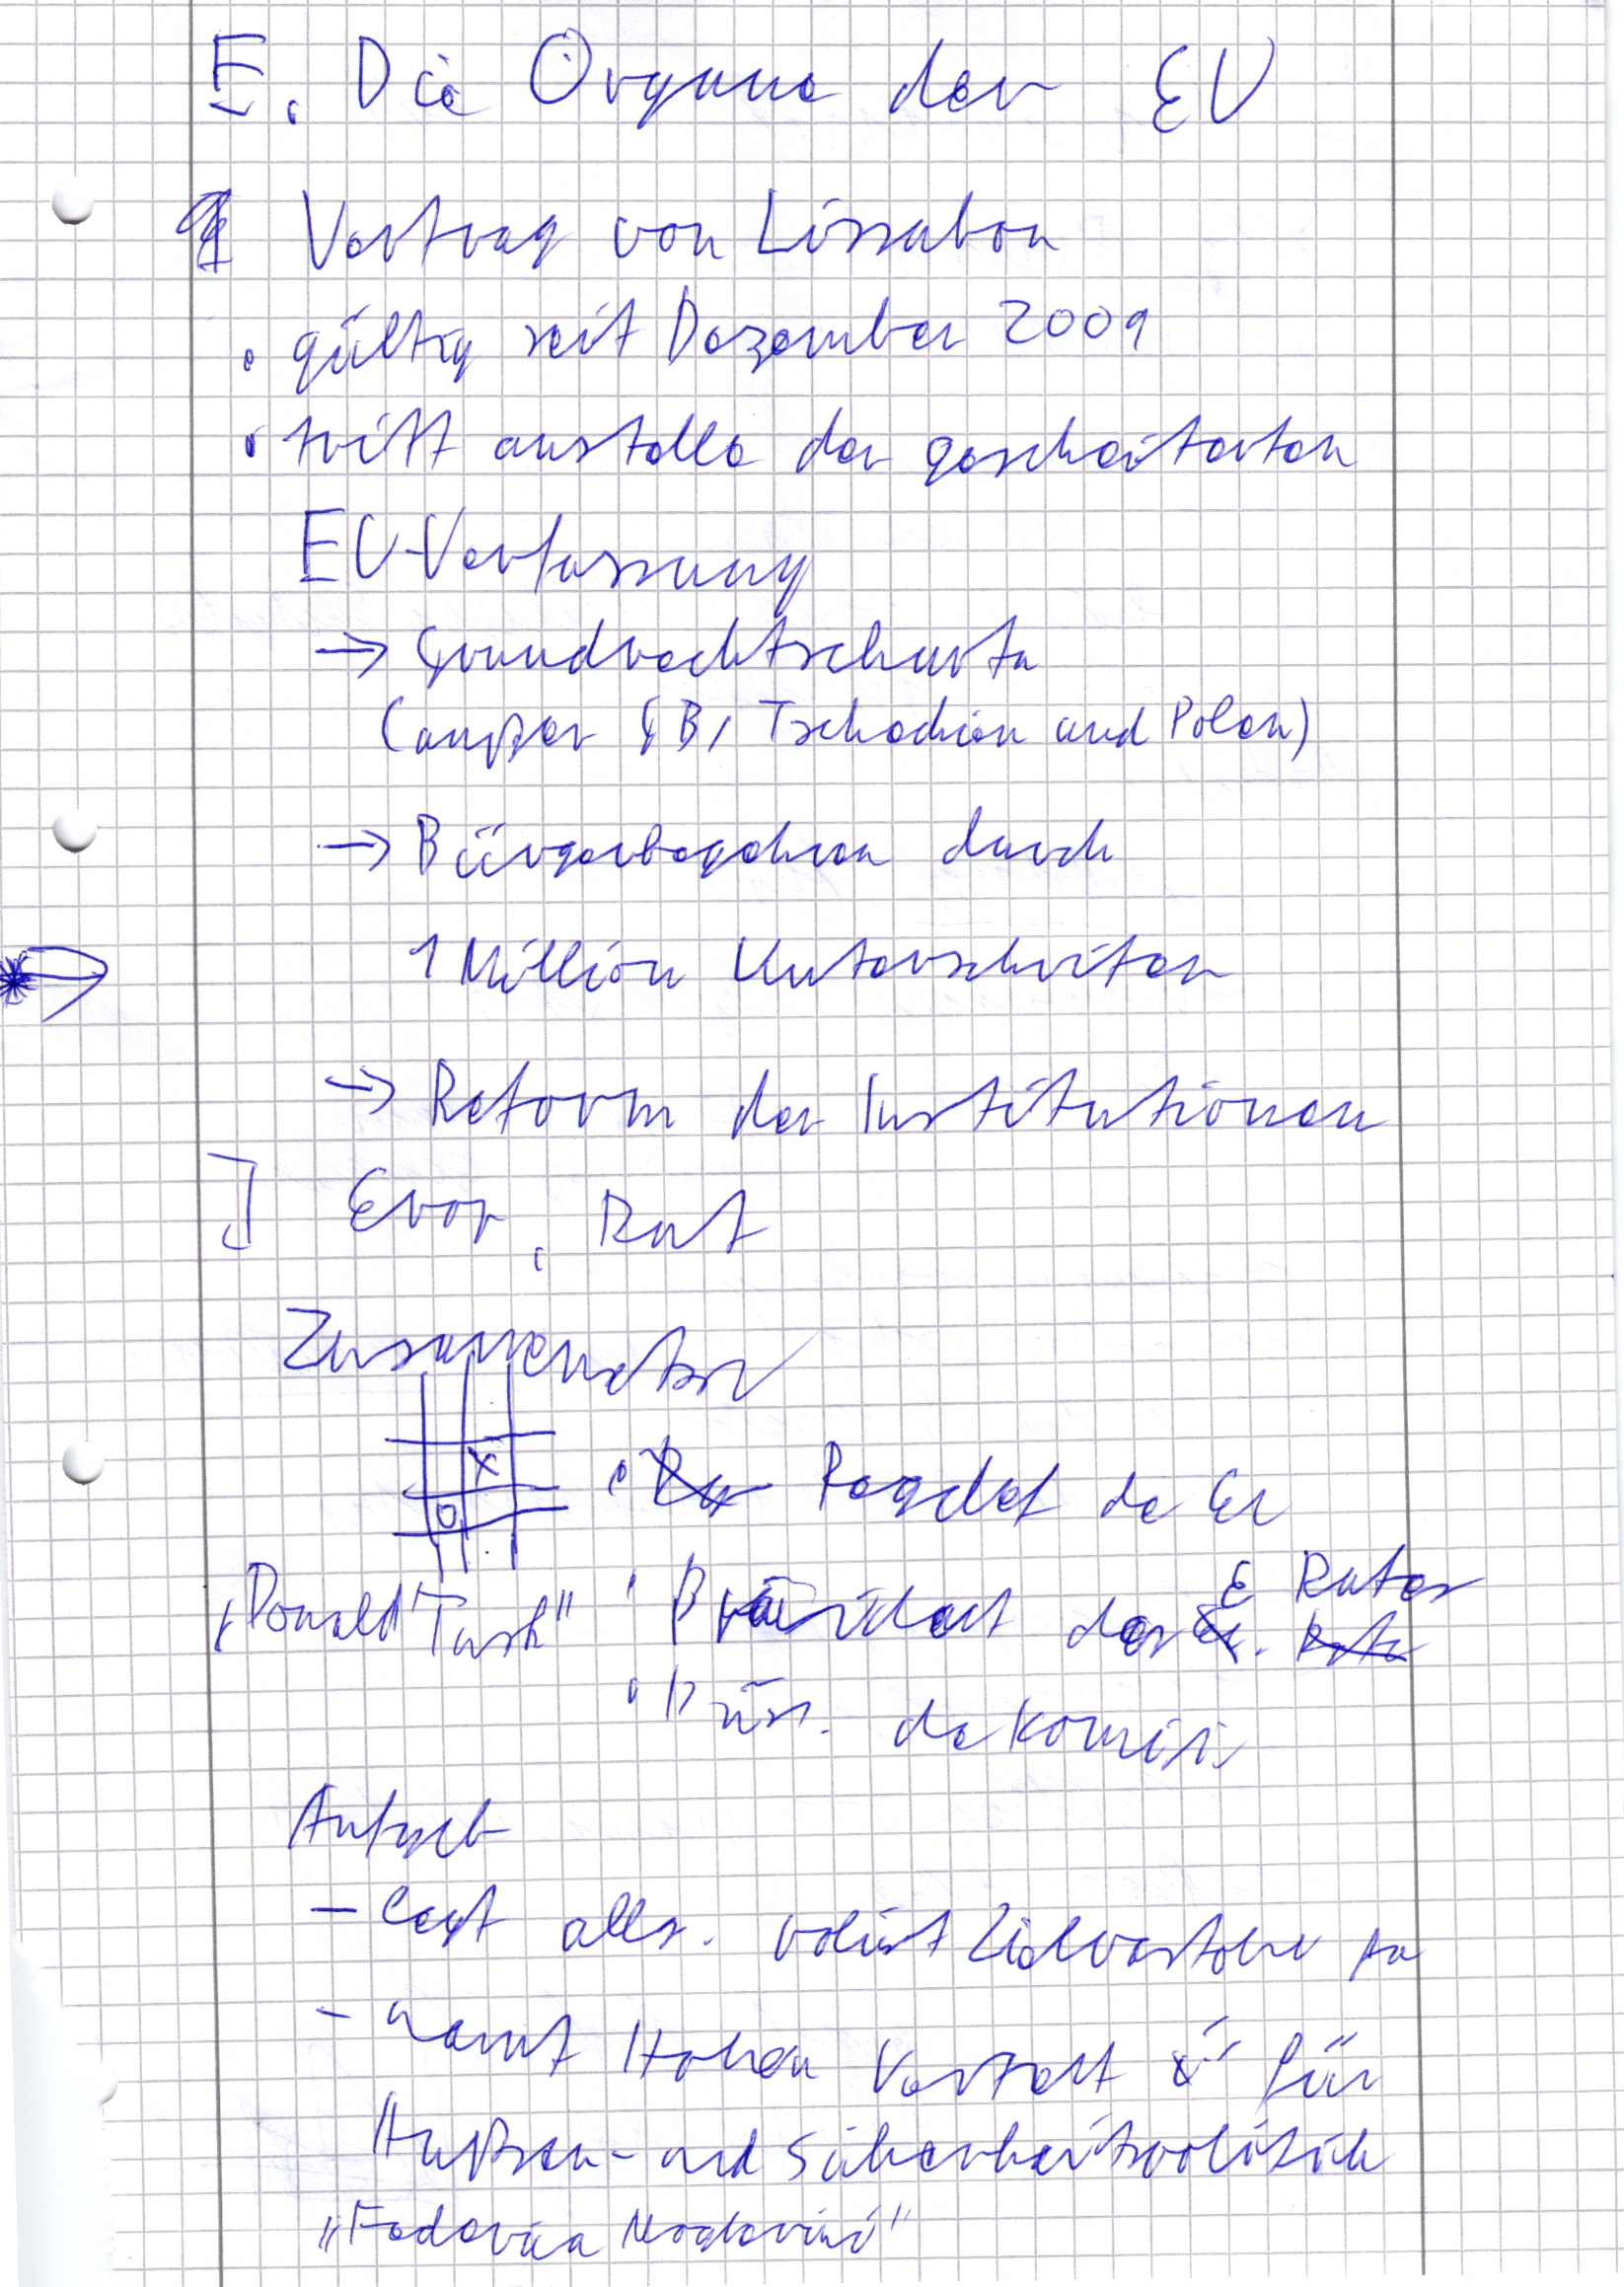 E. Die Organe der EU
Vertrag von Lissabon
• gültig seit Dezember 2009
• tritt anstelle der gescheiterten
EU-Verfassung
→ Grundrechtscharta
(außer GB, Tschechien und Polen)
→ Bürgerbegehren durch
1 Million Unterschriften
→ Reform der Institutionen
I Europ. Rat
Zusammensetz
x
• Regchef de
o
„Donald Tusk" • Präsident des E Rates
• Präs. de Komissi
Aufgab
- legt allg. polit Zielvorstell
- nennt Hohen Vertret für
Außen- und Sicherheitspolitik
„Federica Mogherini"